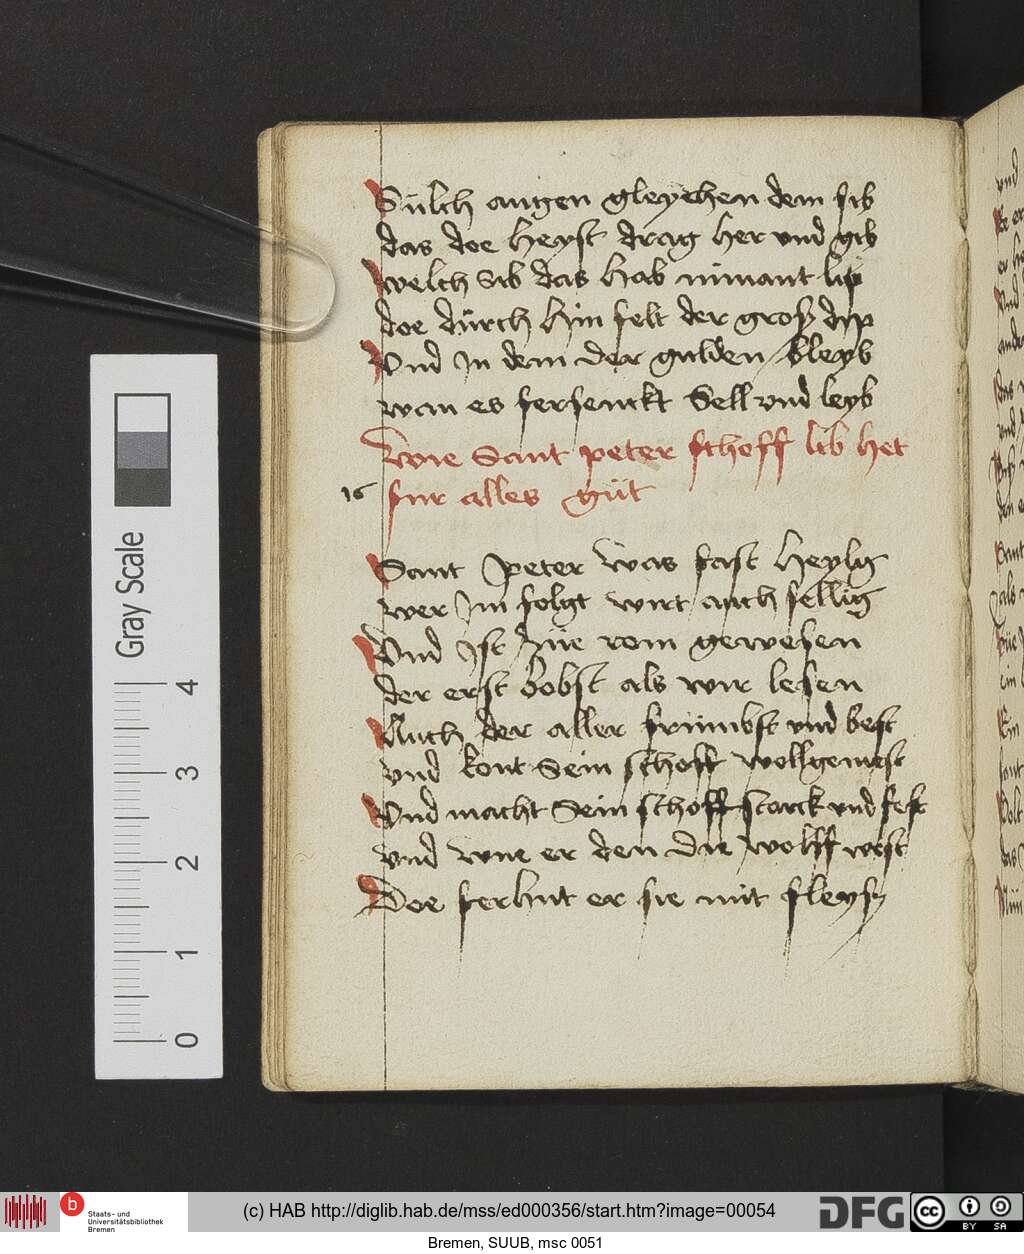 Sülch augen gleychen dem sib
das doe heyst drag her vnd gib
welch sib das hab nimant lip
doe dürch hin felt der grosz dip
Vnd In dem der gulden bleyb
wan es fersenckt Sell vnd leyb
Wie Sant peter schoff lib het
16 fur alles güt
Sant Peter was fast heylig
wer Im folgt wirt auch sellig
Vnd Ist zue rom gewesen
der erst bobst als wir lesen
Auch der aller frümbst vnd best
vnd kont Sein schoff woll gemest
Vnd macht Sein schoff starck vnd fest
vnd wue er den die wolff west
Doe ferhut er sie mit fleysz
Gray Scale
4
3
2
1
0
b
Staats- und
Universitätsbibliothek
Bremen
(c) HAB http://diglib.hab.de/mss/ed000356/start.htm?image=00054
DFG
cc
BY SA
Bremen, SUUB, msc 0051